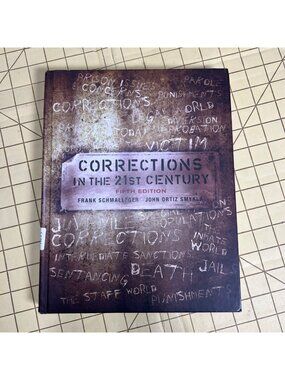 PRISON ISSUES
CONCERNS
PAROLE
PUNISHMENTS
CORRECTIONS
WORLD
DIVERSION
PRISONS TODAY
PROBATION
VICTIM
CORRECTIONS
IN THE 21ST CENTURY
FIFTH EDITION
FRANK SCHMALLEGER JOHN ORTIZ SMYKLA
JUVENILE
CORRECTIONS
INMATE
WORLD
INTERMEDIATE SANCTIONS
JAIL
SENTANCING
DEATH
THE STAFF WORLD
PUNISHMENTS